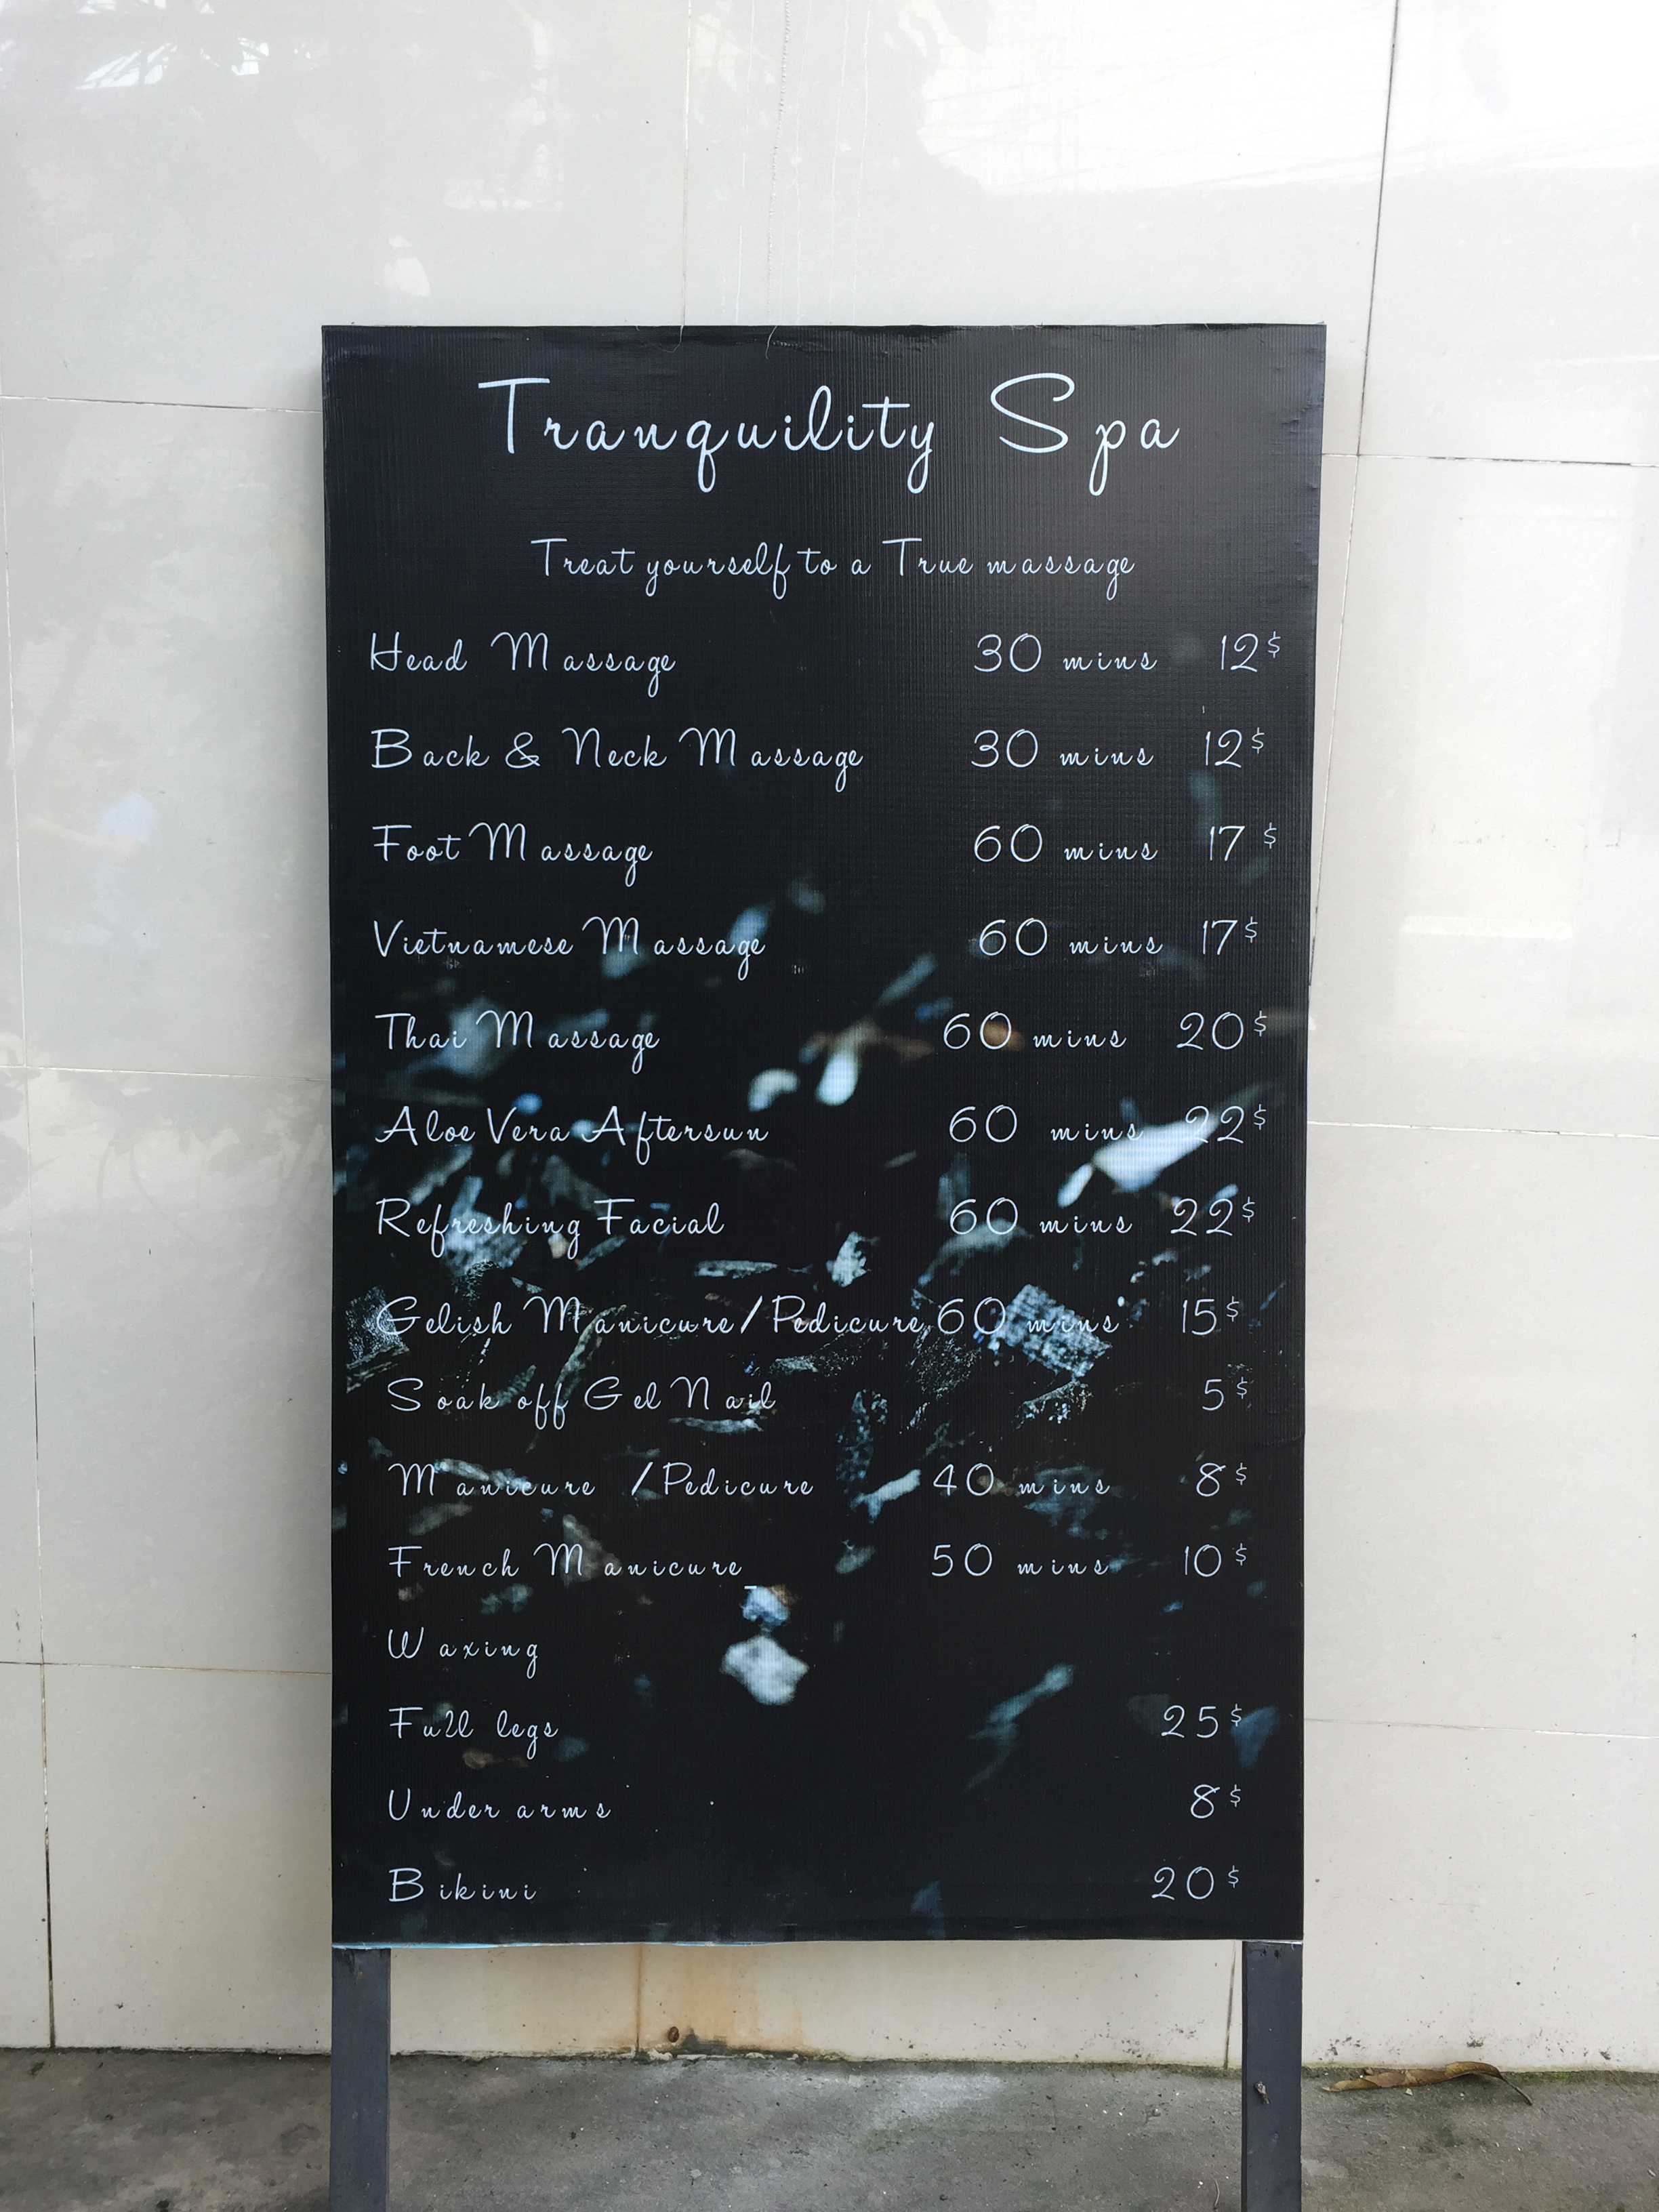 Tranquility Spa
Treat yourself to a True massage
Head Massage 30 mins 12$
Back & Neck Massage 30 mins 12$
Foot Massage 60 mins 17 $
Vietnamese Massage 60 mins 17$
Thai Massage 60 mins 20$
Aloe Vera Aftersun 60 mins 22$
Refreshing Facial 60 mins 22$
Gelish Manicure/Pedicure 60 mins 15$
Soak off Gel Nail 5$
Manicure /Pedicure 40 mins 8$
French Manicure 50 mins 10$
Waxing
Full legs 25$
Under arms 8$
Bikini 20$